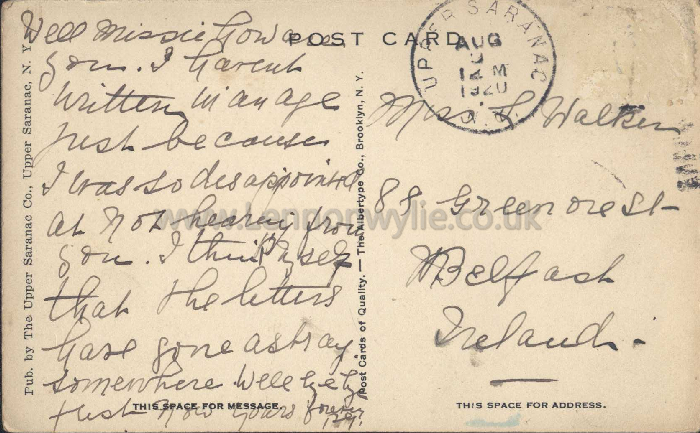 Well Missie How are
you. I havent
written in an age
just because
I was so disappointed
at not hearing from
you. I think myself
that the letters
have gone astray
somewhere Well
just now yours forever
POST CARD
UPPER SARANAC
AUG
12 M
1920
N.Y.
Miss L Walker
88 Greencrest
Belfast
Ireland.
THIS SPACE FOR MESSAGE.
THIS SPACE FOR ADDRESS.
Pub. by The Upper Saranac Co., Upper Saranac, N. Y.
Post Cards of Quality. — The Albertype Co., Brooklyn, N. Y.
www.Lennonwylie.co.uk